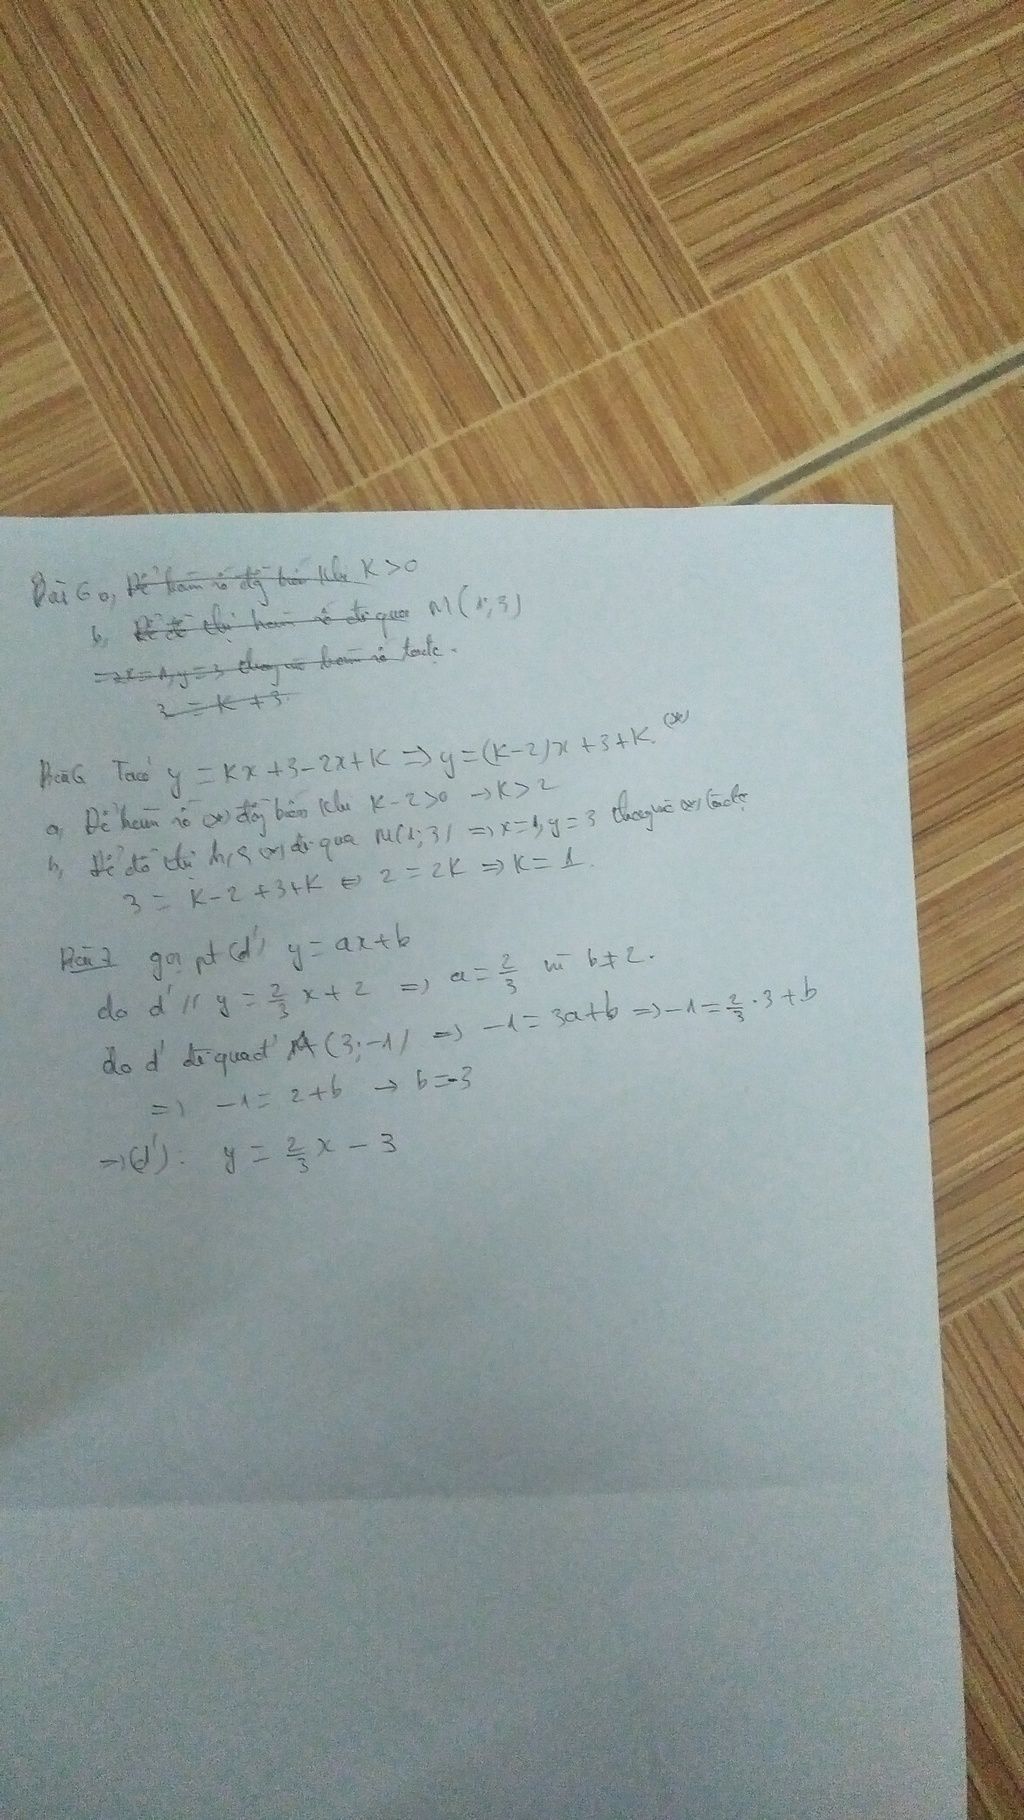 Bài 6 a, Để hàm số đồng biến khi K>0
b, Để đồ thị hàm số đi qua M(1;3)
=> x=1, y=3 thay vào hàm số ta có.
3 = K +3.
Bài 6 Ta có y = Kx+3-2x+K => y=(K-2)x+3+K. (*)
a, Để hàm số (*) đồng biến khi K-2>0 → K>2
b, Để đồ thị h/s (*) đi qua M(1;3) => x=1, y=3 thay vào (*)
3 = K-2+3+K <=> 2=2K => K=1.
Bài 7 gọi pt (d') y=ax+b
do d' // y = 2/3 x+2 => a = 2/3 và b≠2.
do d' đi qua A(3;-1) => -1=3a+b => -1= 2/3 .3+b
=> -1= 2+b → b=-3
=> (d'): y = 2/3 x - 3